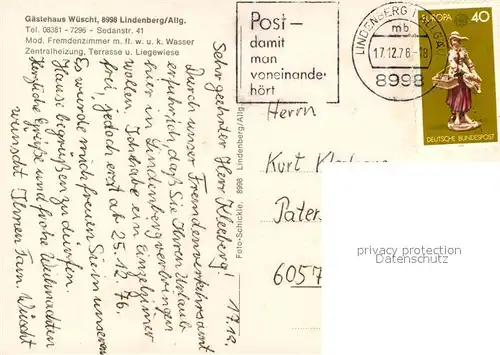 Gästehaus Wüscht, 8998 Lindenberg/Allg.
Tel. 08381 - 7296 - Sedanstr. 41
Mod. Fremdenzimmer m. fl. w. u. k. Wasser
Zentralheizung, Terrasse u. Liegewiese
17.12.
Sehr geehrter Herr Kleeberg!
Durch unser Fremdenverkehrsamt
erfuhr ich, daß Sie Ihren Urlaub
hier in Lindenberg verbringen
wollen. Ich habe ein Einzelzimmer
frei, jedoch erst ab 25.12.76.
Es würde mich freuen Sie in unserem
Hause begrüßen zu dürfen.
Herzliche Grüße und frohe Weihnachten
wünscht Ihnen Fam. Wüscht
Foto-Schickle, 8998 Lindenberg/Allg.
Post-
damit
man
voneinander
hört
LINDENBERG I ALLGÄU
mb
17.12.76.-18
8998
EUROPA 40
DEUTSCHE BUNDESPOST
Herrn
Kurt
Paters
6057
privacy protection
Datenschutz